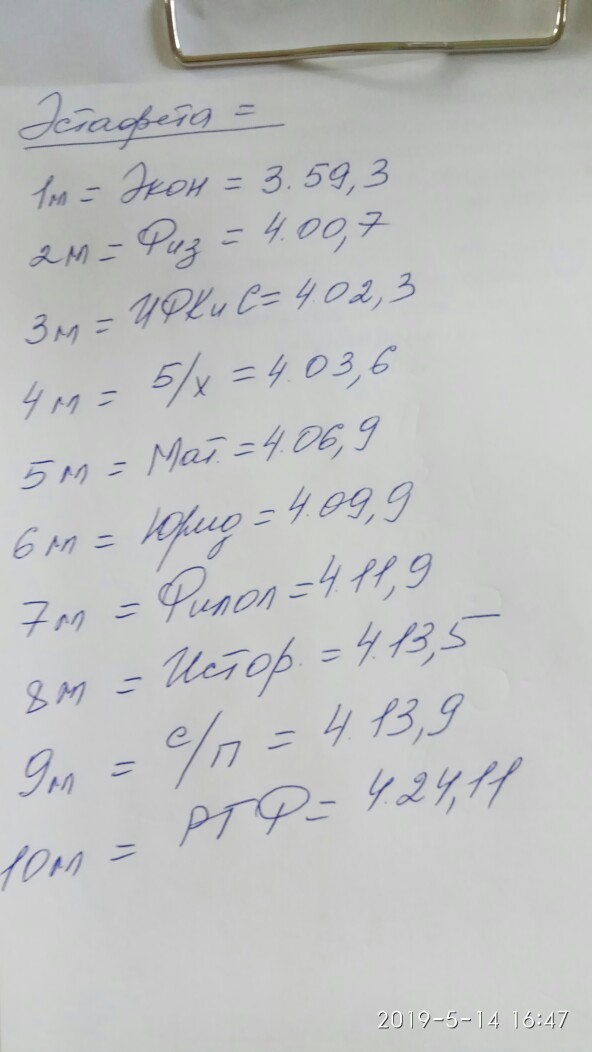 Эстафета =
1м = Экон = 3.59,3
2м = Физ = 4.00,7
3м = ИФКиС = 4.02,3
4м = б/х = 4.03,6
5м = Мат. = 4.06,9
6м = Юрид = 4.09,9
7м = Филол = 4.11,9
8м = Истор. = 4.13,5
9м = с/п = 4.13,9
10м = РТФ = 4.24,11
2019-5-14 16:47